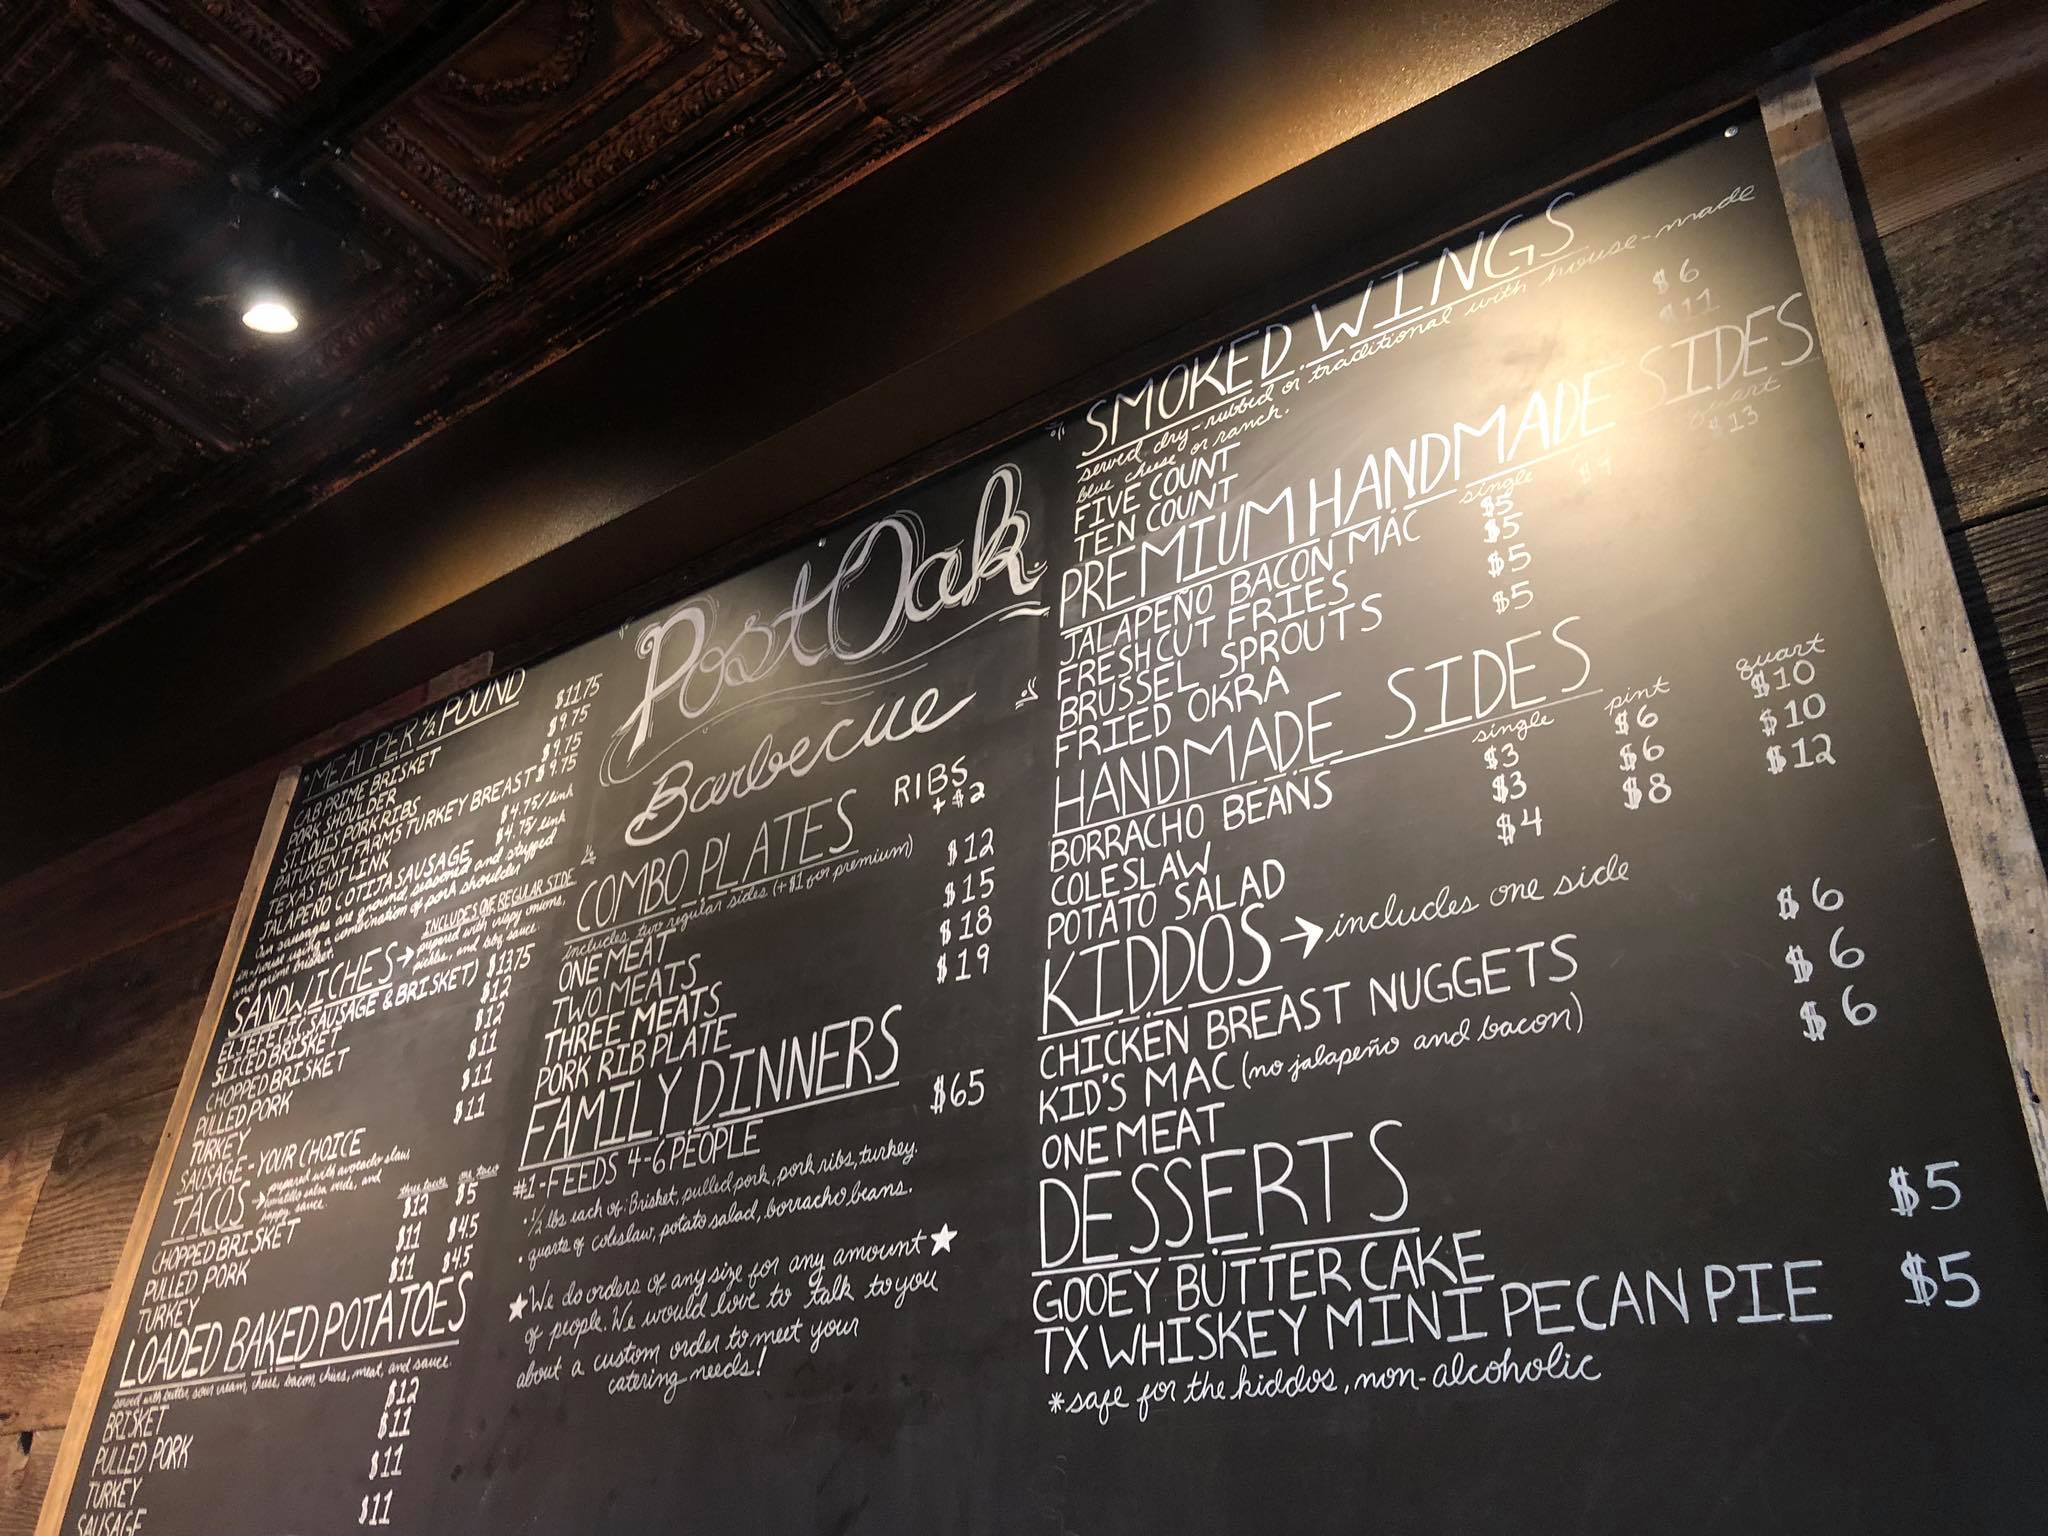 MEAT PER ½ POUND
CAB PRIME BRISKET $11.75
PORK SHOULDER $9.75
ST. LOUIS PORK RIBS $9.75
PATUXENT FARMS TURKEY BREAST $9.75
TEXAS HOT LINK $4.75/link
JALAPEÑO COTIJA SAUSAGE $4.75/link
our sausages are ground, seasoned and stuffed
in-house using a combination of pork shoulder
and prime brisket.
SANDWICHES → INCLUDES ONE REGULAR SIDE
prepared with crispy onions,
pickles, and bbq sauce
EL JEFE (TC, SAUSAGE & BRISKET) $13.75
SLICED BRISKET $12
CHOPPED BRISKET $12
PULLED PORK $11
TURKEY $11
SAUSAGE - YOUR CHOICE $11
TACOS → prepared with avocado slaw,
tomatillo salsa verde, and
happy sauce.
three tacos one taco
CHOPPED BRISKET $12 $5
PULLED PORK $11 $4.5
TURKEY $11 $4.5
LOADED BAKED POTATOES
served with butter, sour cream, cheese, bacon, chives, meat, and sauce.
BRISKET $12
PULLED PORK $11
TURKEY $11
SAUSAGE $11
Post Oak
Barbecue
COMBO PLATES RIBS
+ $2
includes two regular sides (+$1 for premium)
ONE MEAT $12
TWO MEATS $15
THREE MEATS $18
PORK RIB PLATE $19
FAMILY DINNERS
#1-FEEDS 4-6 PEOPLE $65
• ½ lbs each of: Brisket, pulled pork, pork ribs, turkey.
• quarts of coleslaw, potato salad, borracho beans.
★ We do orders of any size for any amount ★
of people. We would love to talk to you
about a custom order to meet your
catering needs!
SMOKED WINGS
served dry-rubbed or traditional with house-made
blue cheese or ranch.
FIVE COUNT $6
TEN COUNT $11
PREMIUM HANDMADE SIDES
single quart
JALAPEÑO BACON MAC $5 $13
FRESH CUT FRIES $5
BRUSSEL SPROUTS $5
FRIED OKRA $5
HANDMADE SIDES
single pint quart
BORRACHO BEANS $3 $6 $10
COLESLAW $3 $6 $10
POTATO SALAD $4 $8 $12
KIDDOS → includes one side
CHICKEN BREAST NUGGETS $6
KID'S MAC (no jalapeño and bacon) $6
ONE MEAT $6
DESSERTS
GOOEY BUTTER CAKE $5
TX WHISKEY MINI PECAN PIE $5
*safe for the kiddos, non-alcoholic